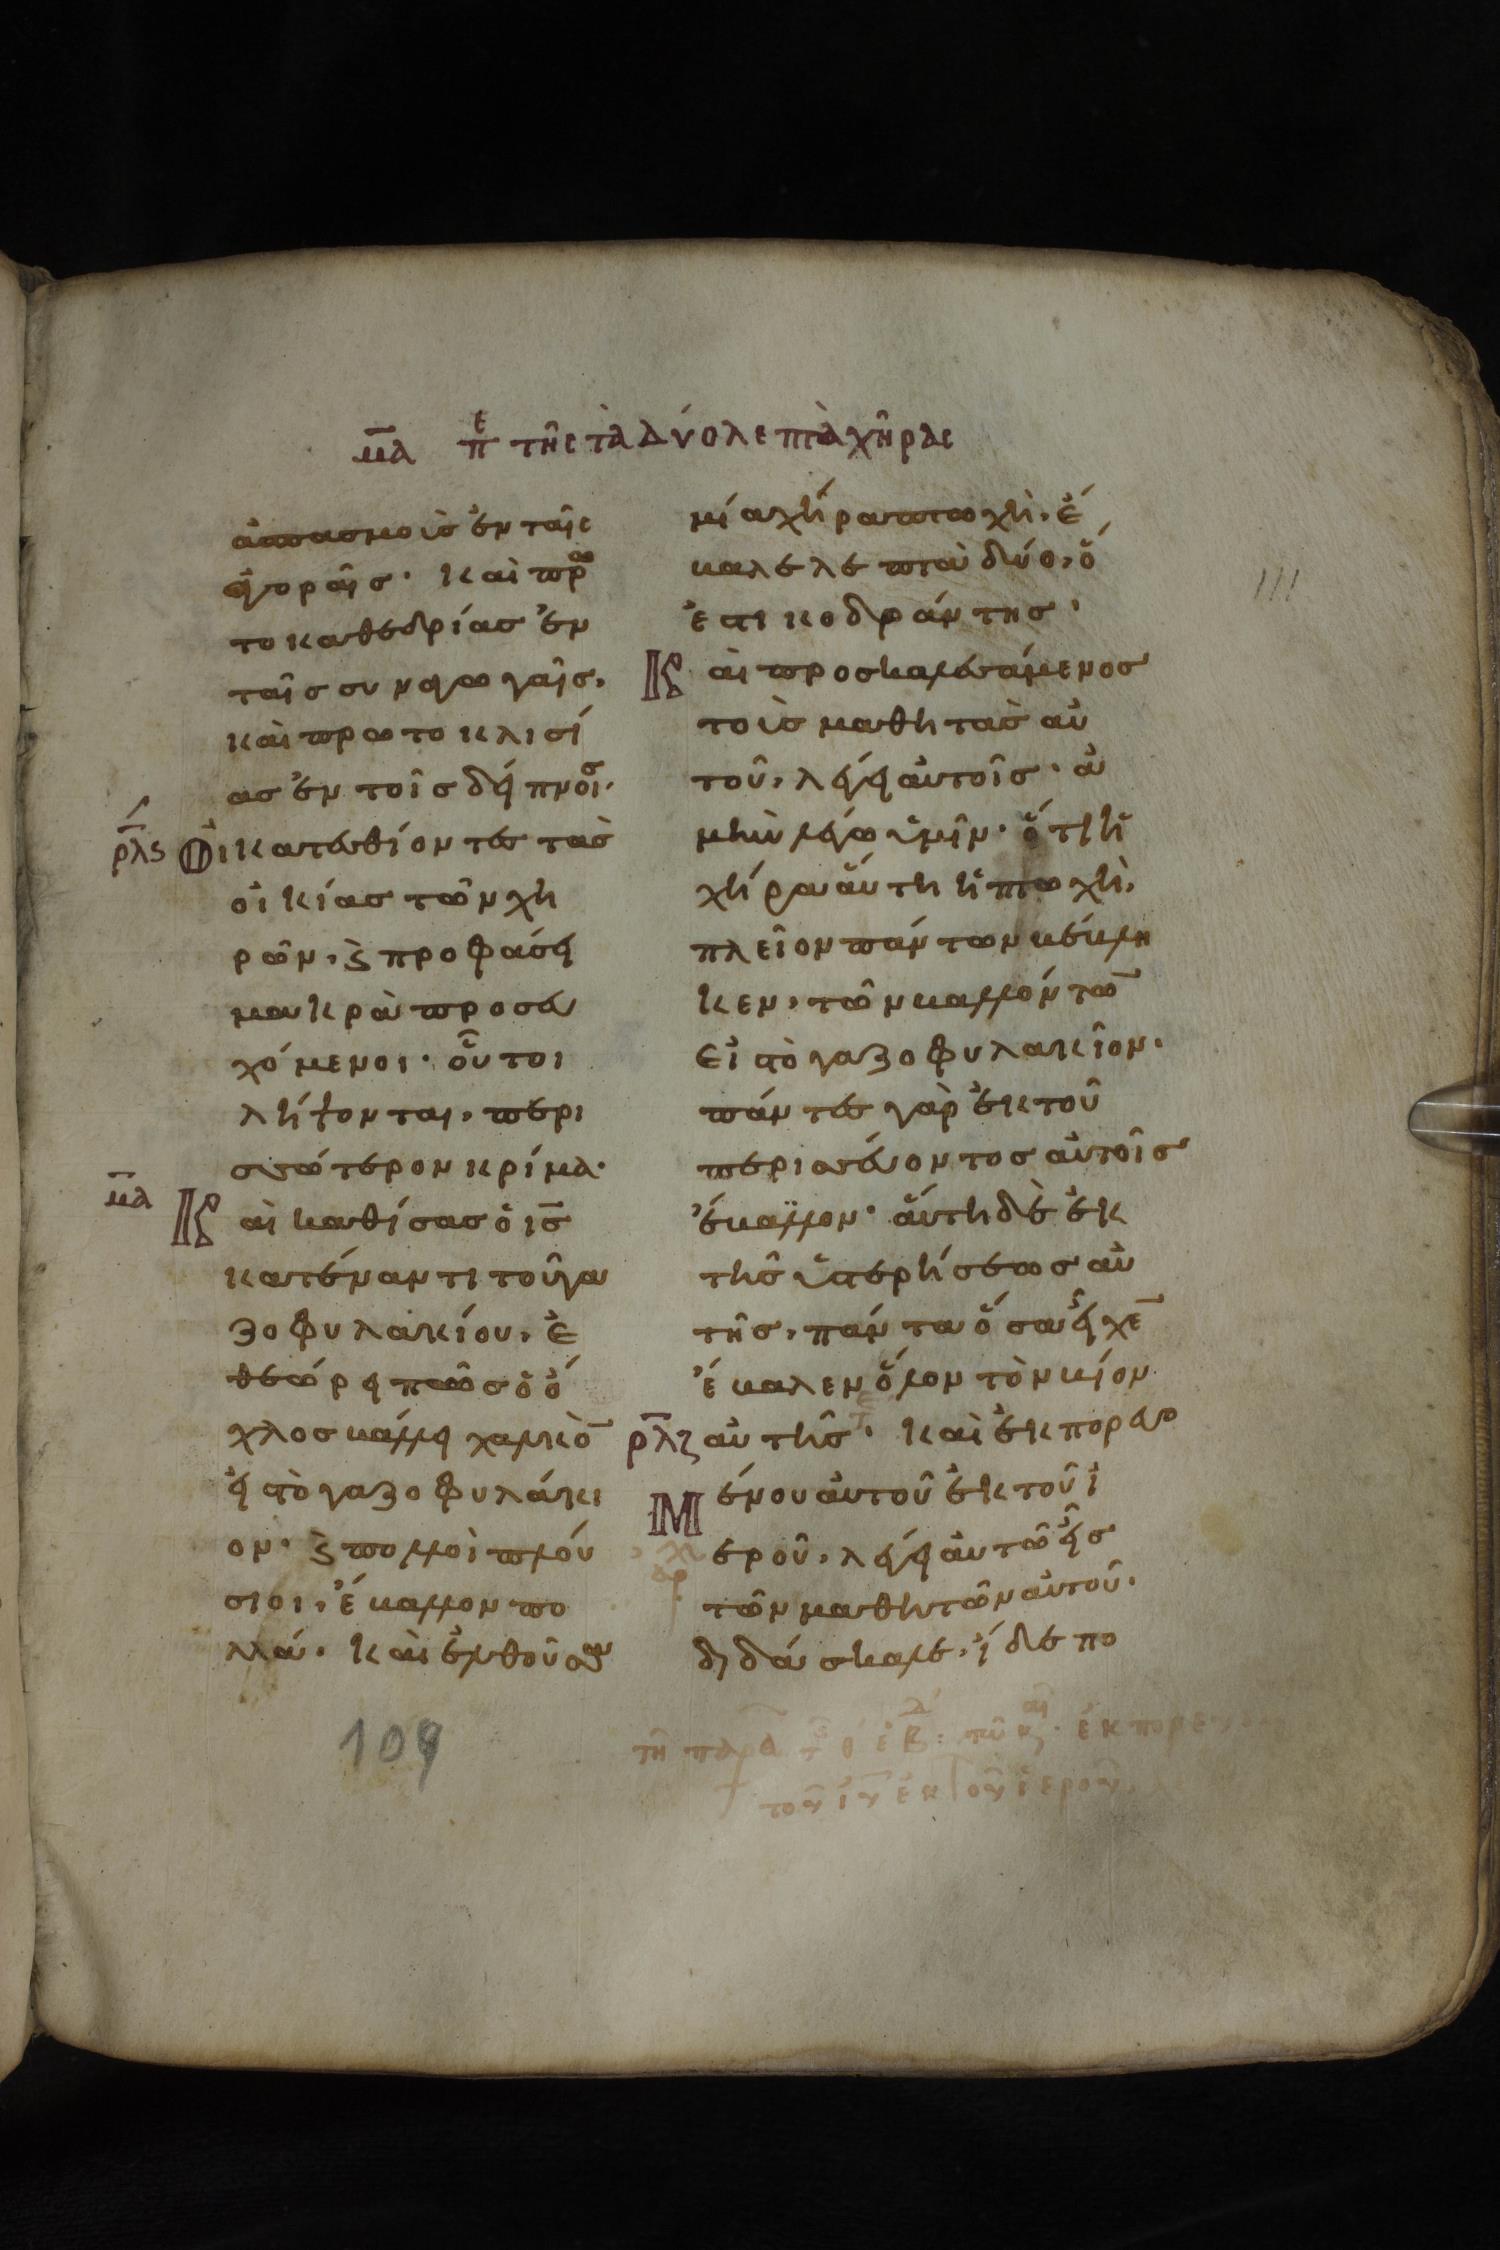 μ̅α̅ πε τῆς τὰ δύο λεπτὰ χῆρας
ἀσπασμοὺσ ἐν ταῖς
ἀγοραῖσ· καὶ πρω
τοκαθεδρίασ ἐν
ταῖσ συναγωγαῖσ,
καὶ πρωτοκλισί
ασ ἐν τοῖσ δείπνοισ·
ρ̅λ̅ς̅ Οἱ κατεσθίοντεσ τὰσ
οἰκίασ τῶν χη
ρῶν, ϗ προφάσει
μακρὰ προσευ
χόμενοι· οὗτοι
λήψονται, περι
σσώτερον κρίμα·
μ̅α̅ Καὶ καθίσασ ὁ ι̅σ̅
κατέναντι τοῦ γα
ζοφυλακίου, ἐ
θεώρει πῶσ ὁ ὄ
χλοσ βάλλει χαλκὸ̅
εἰσ τὸ γαζοφυλάκι
ον· ϗ πολλοὶ πλού
σιοι, ἔβαλλον πο
λλά· καὶ ἐλθοῦσα
μία χήρα πτωχὴ, ἔ
βαλε λεπτὰ δύο, ὅ
ἐστι κοδράντησ·
Καὶ προσκαλεσάμενοσ
τοὺσ μαθητὰσ αὐ
τοῦ, λέγει αὐτοῖσ· ἀ
μὴν λέγω ὑμῖν· ὅτι ἡ
χήρα αὕτη ἡ πτωχὴ,
πλεῖον πάντων βέβλη
κεν, τῶν βαλλόντω̅
εἰσ τὸ γαζοφυλακῖον·
πάντεσ γὰρ ἐκ τοῦ
περισσεύοντοσ αὐτοῖσ
ἔβαλλον· αὕτη δὲ ἐκ
τῆσ ὑστερήσεωσ αὐ
τῆσ, πάντα ὅσα εἶχε̅
ἔβαλεν ὅλον τὸν βίον
ρ̅λ̅ζ̅ αὐτῆσ· καὶ ἐκπορευο
Μένου αὐτοῦ ἐκ τοῦ ἱ
εροῦ, λέγει αὐτῶ εἷσ
τῶν μαθητῶν αὐτοῦ·
διδάσκαλε, ἴδε πο
111
109
τοῦ ι̅υ̅ ἐκ τοῦ ἱεροῦ